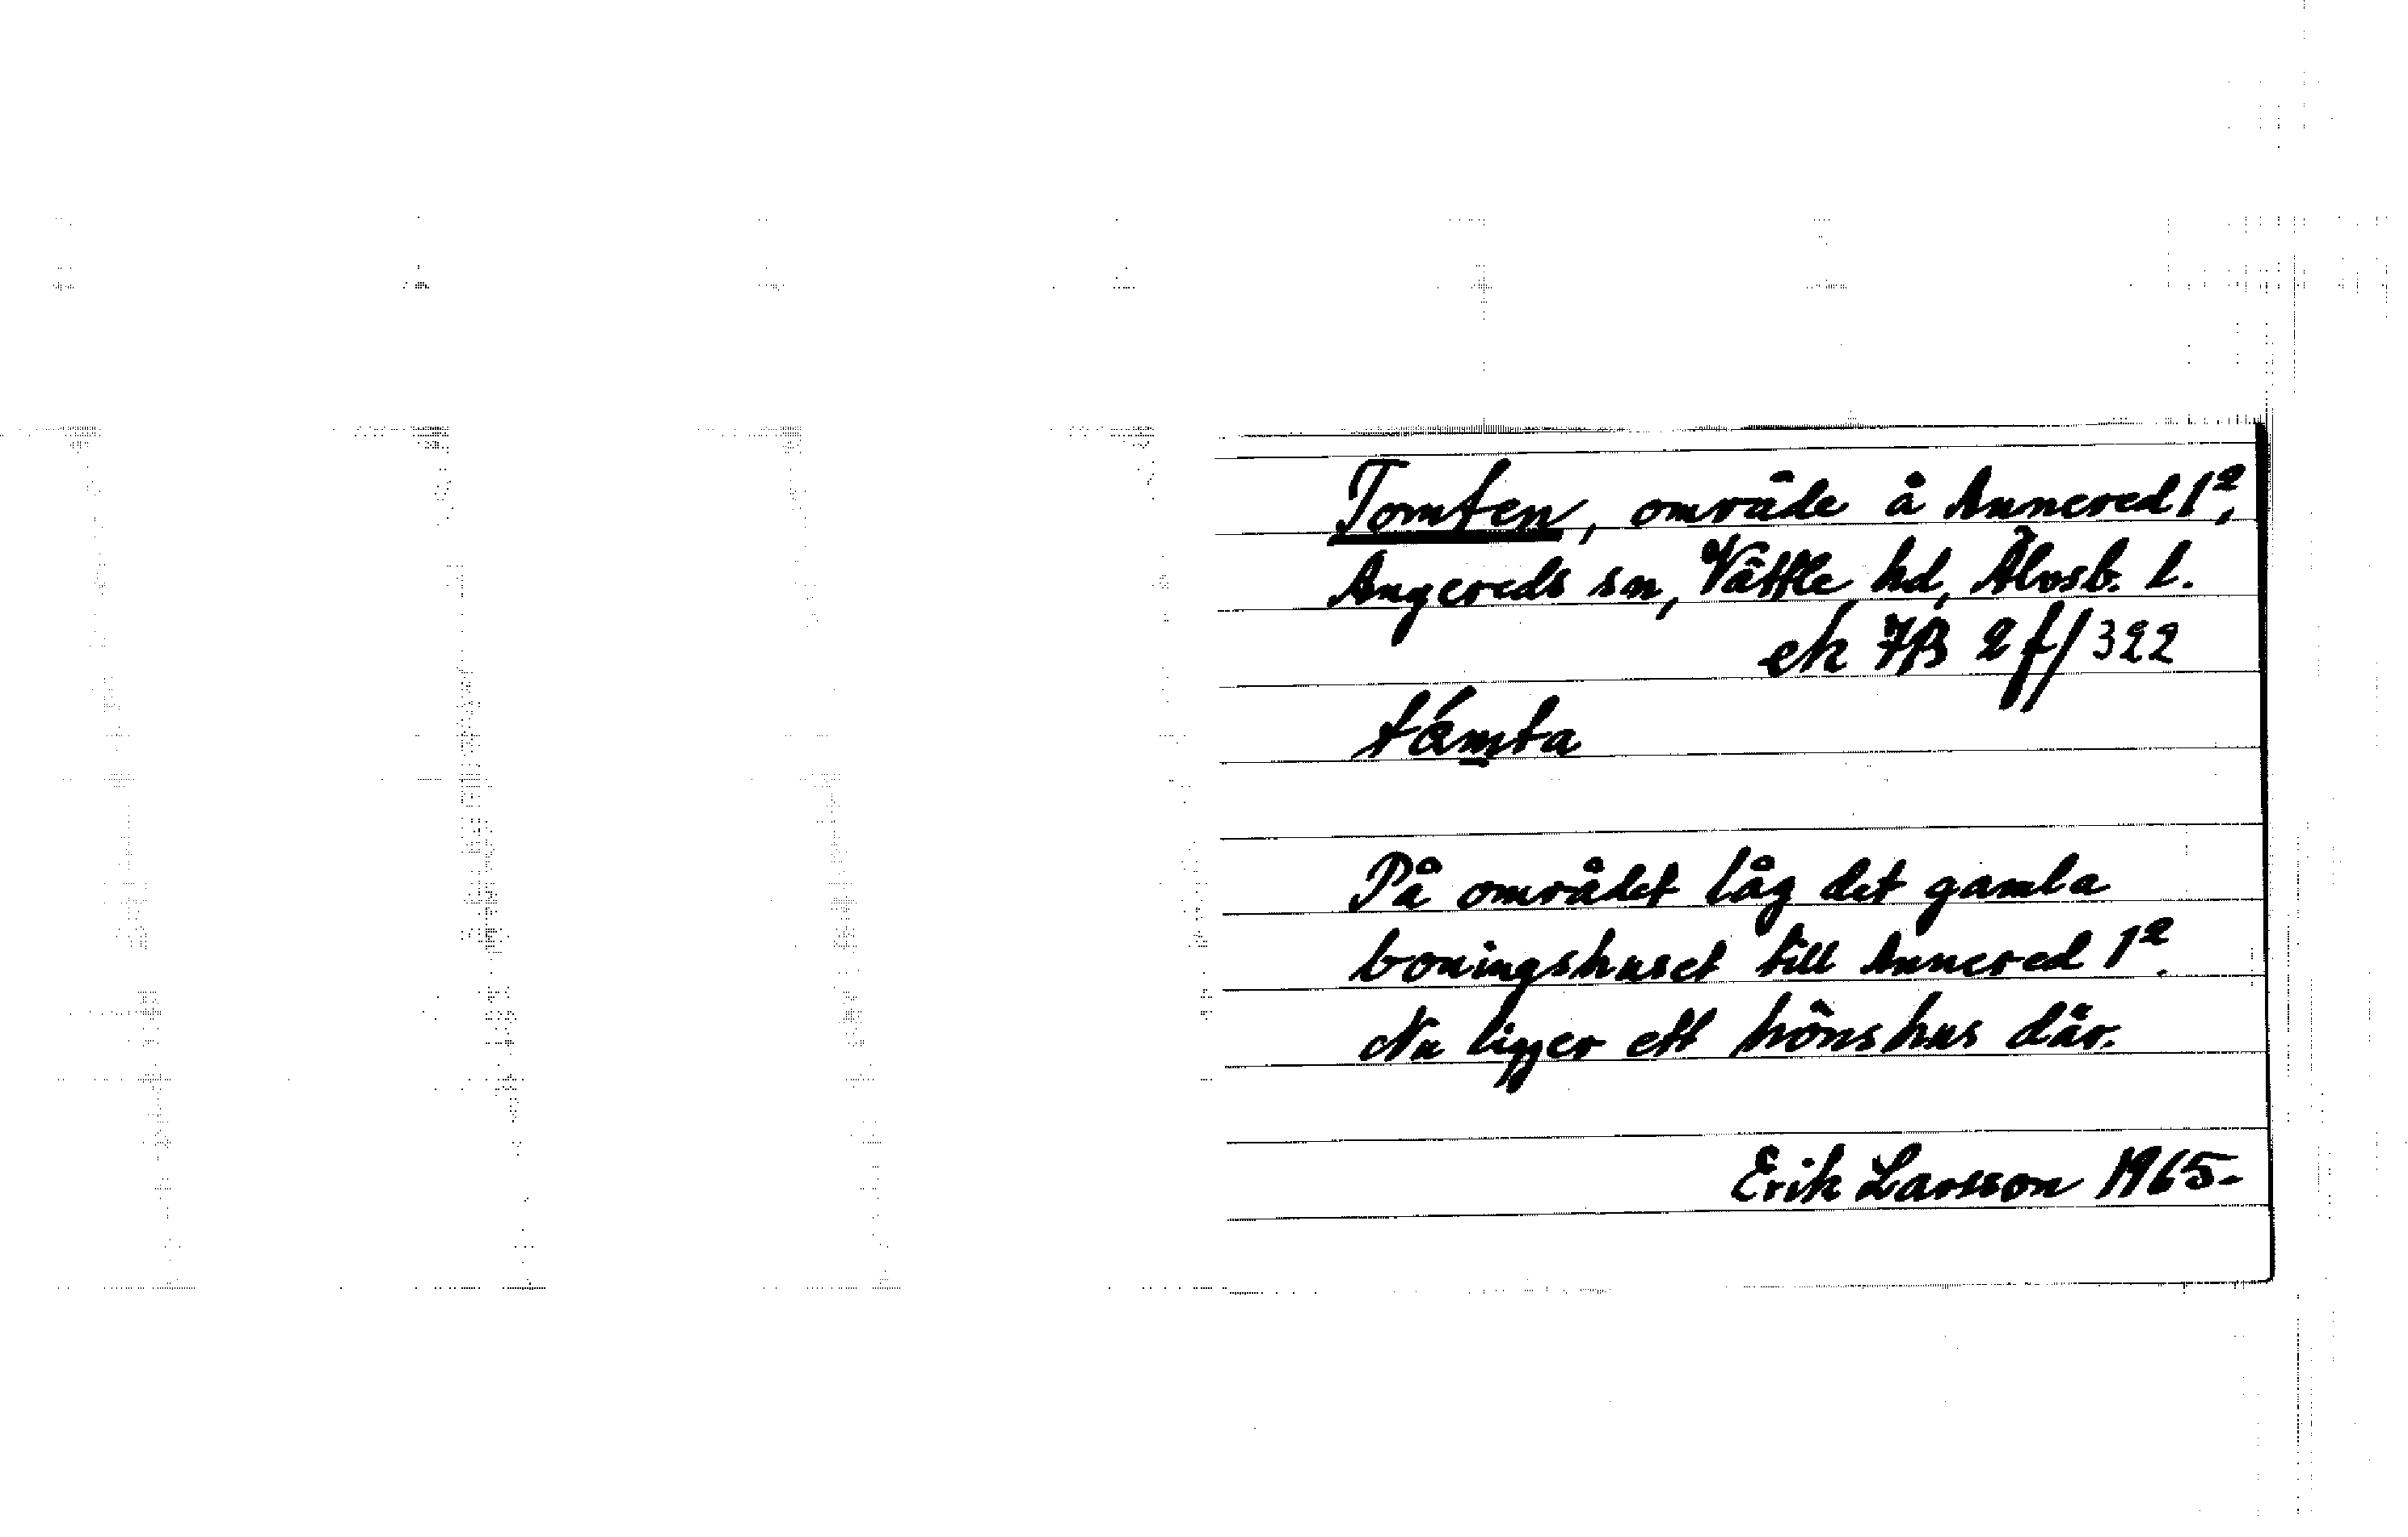 Tomten, område å Annered 1²,
Angereds sn, Vättle hd, Älvsb. l.
ek 7B 2f/322
tómta
På området låg det gamla
boningshuset till Annered 1².
Nu ligger ett hönshus där.
Erik Larsson 1965-